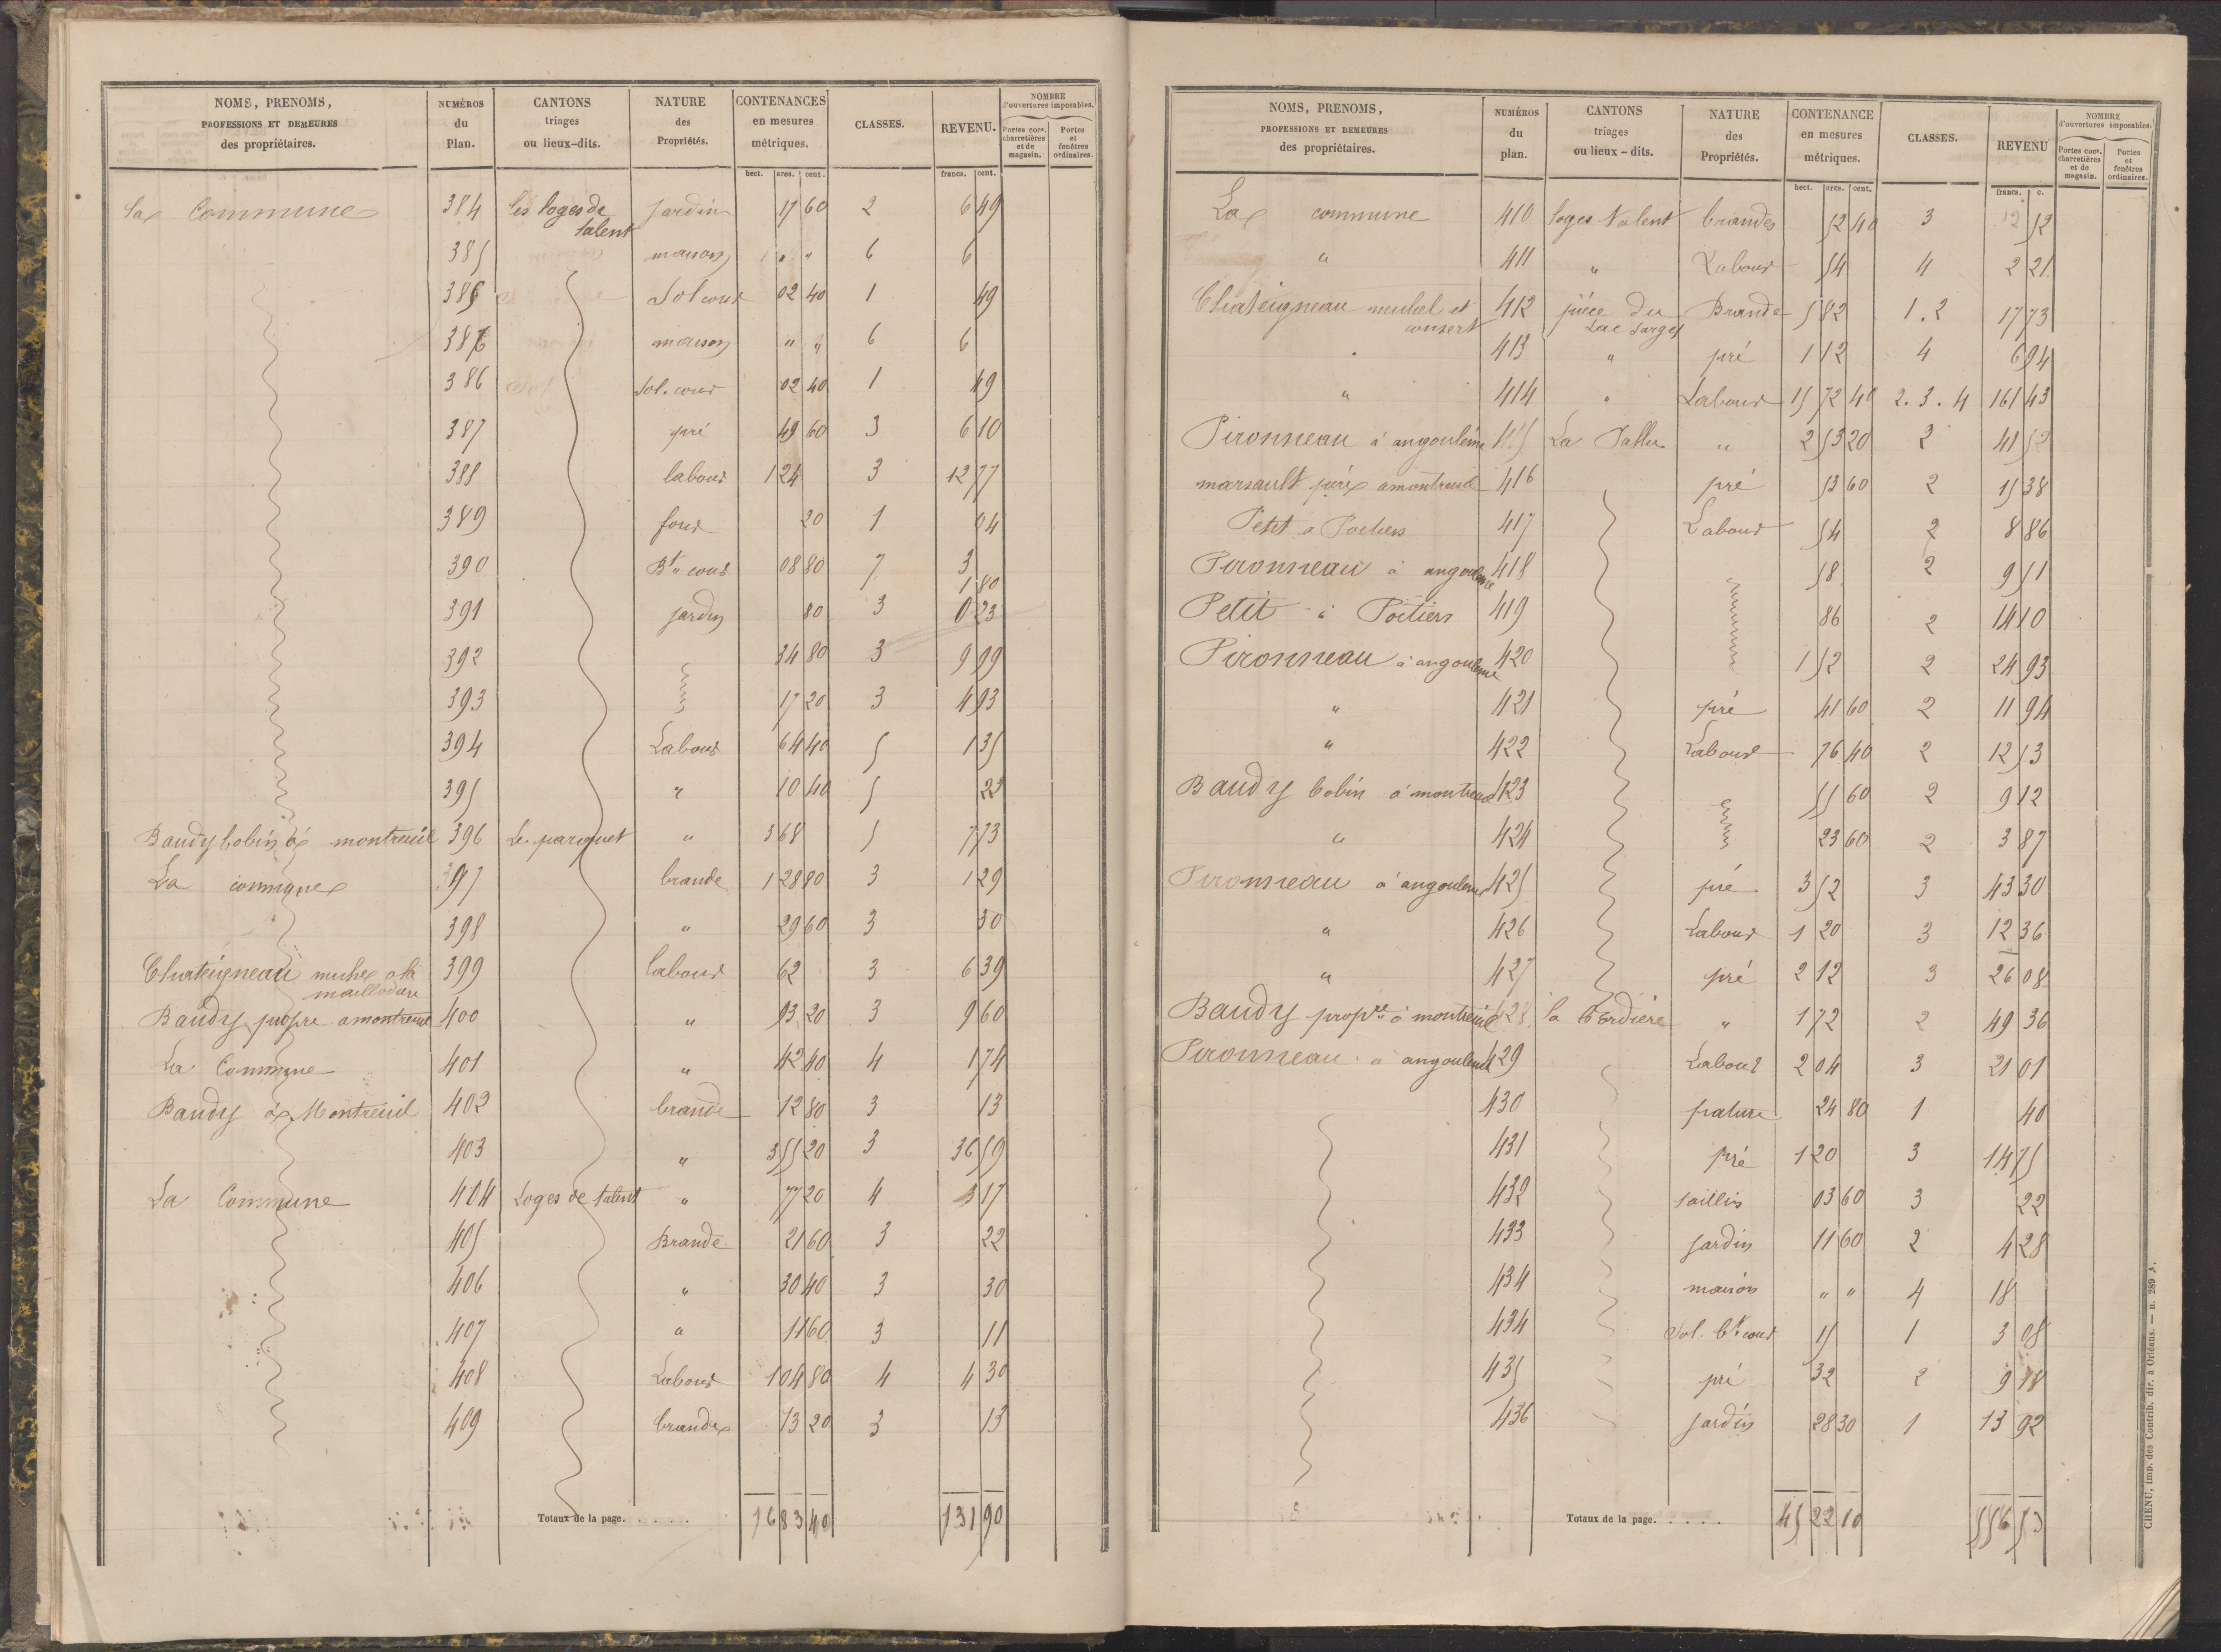 NOMS, PRENOMS, PROFESSIONS ET DEMEURES des propriétaires. | NUMÉROS du Plan. | CANTONS triages ou lieux-dits. | NATURE des Propriétés. | CONTENANCES en mesures métriques. | CLASSES. | REVENU. | NOMBRE d'ouvertures imposables.
Portes coch. charretières et de magasin. | Portes et fenêtres ordinaires.
hect. ares. cent. | francs. cent.
La Commune 384 les loges de talent Jardin 17 60 2 6 49
385 maison " " 6 6
385 Sol cour 02 40 1 49
386 maison " " 6 6
386 Sol. cour 02 40 1 49
387 pré 49 60 3 6 10
388 labour 1 24 3 12 77
389 four 20 1 04
390 Bt cour 08 80 7 3
1 80
391 jardin 80 3 0 23
392 34 80 3 9 99
393 17 20 3 4 93
394 Labour 64 40 5 1 35
395 " 10 40 5 22
Baudy bobin à montreuil 396 Le parquet " 3 68 5 7 73
La commune 397 brande 1 28 80 3 1 29
398 " 29 60 3 30
Chateigneau michel a la maillodure 399 labour 62 3 6 39
Baudy propre a montreuil 400 " 93 20 3 9 60
La Commune 401 " 42 40 4 1 74
Baudy à Montreuil 402 brande 12 80 3 13
403 " 3 55 20 3 36 59
La Commune 404 Loges de talent " 77 20 4 3 17
405 Brande 21 60 3 22
406 " 30 40 3 30
407 " 11 60 3 11
408 Labour 1 04 80 4 4 30
409 brande 13 20 3 13
Totaux de la page. . . . . 16 83 40 131 90
NOMS, PRENOMS, PROFESSIONS ET DEMEURES des propriétaires. | NUMÉROS du plan. | CANTONS triages ou lieux-dits. | NATURE des Propriétés. | CONTENANCE en mesures métriques. | CLASSES. | REVENU | NOMBRE d'ouvertures imposables.
Portes coch. charretières et de magasin. | Portes et fenêtres ordinaires.
hect. ares. cent. | francs. c.
La commune 410 loges talent brandes 52 40 3 52
" 411 " Labour 54 4 2 21
Chateigneau michel et consort 412 pièce du Lac Sarget Brande 5 82 1.2 17 73
" 413 " pré 1 12 4 6 94
" 414 " Labour 15 72 40 2.3.4 161 43
Pironneau à angoulême 415 La Pallu " 2 53 20 2 41 52
marsault père a montreuil 416 pré 53 60 2 15 38
Petit a Poitiers 417 Labour 54 2 8 86
Pironneau à angouleme 418 58 2 9 51
Petit à Poitiers 419 86 2 14 10
Pironneau à angouleme 420 1 52 2 24 93
" 421 pré 41 60 2 11 94
" 422 Labour 76 40 2 12 53
Baudy bobin à montreuil 423 55 60 2 9 12
" 424 23 60 2 3 87
Pironneau à angouleme 425 pré 3 52 3 43 30
" 426 Labour 1 20 3 12 36
" 427 pré 2 12 3 26 08
Baudy propre à montreuil 428 la Cordière " 1 72 2 49 36
Pironneau à angouleme 429 Labour 2 04 3 21 01
430 pature 24 80 1 40
431 pré 1 20 3 14 75
432 taillis 03 60 3 22
433 Jardin 11 60 2 4 28
434 maison " " 4 18
434 Sol. bt cour 15 1 3 08
435 pré 32 2 9 18
436 Jardin 28 30 1 13 92
Totaux de la page. . . . . 45 22 10 556 53
CHENU, imp. des Contrib. dir. à Orléans. — n. 289 A.